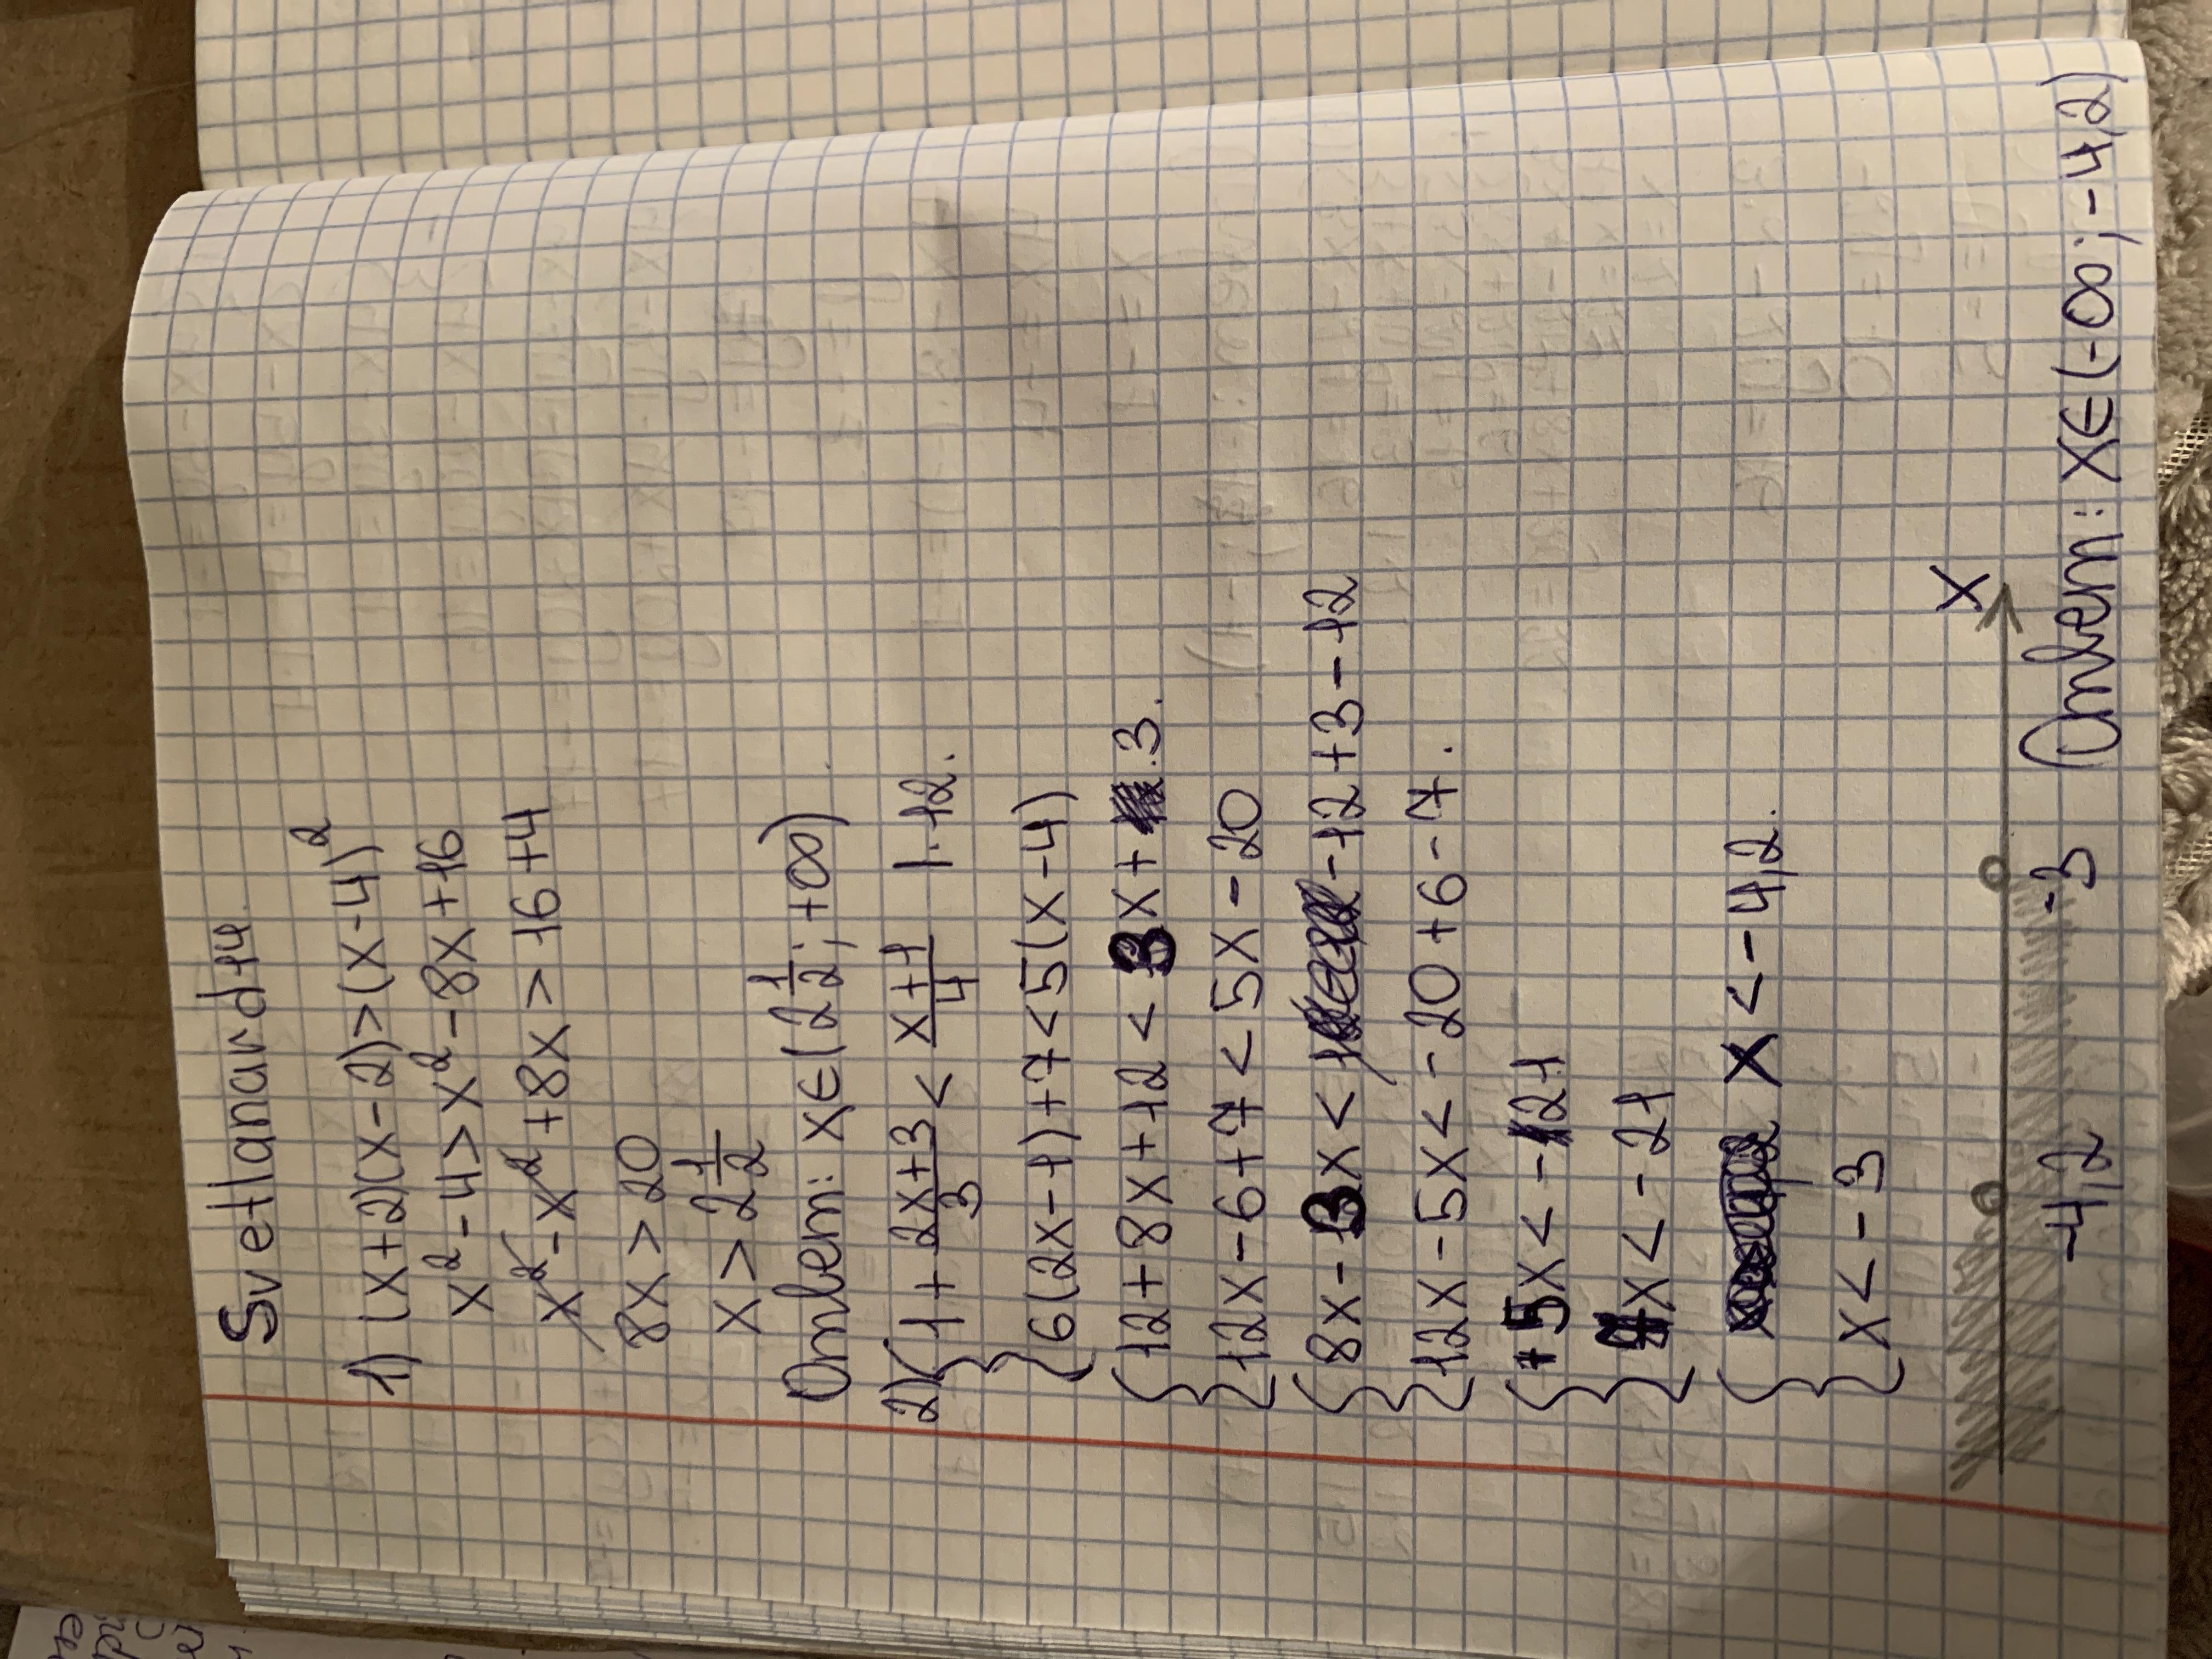 Svetlanard14.
1) (x+2)(x-2)>(x-4)²
x²-4>x²-8x+16
x²-x²+8x>16+4
8x>20
x>2 1/2
Ответ: x∈(2 1/2; +∞)
2) { 1+ (2x+3)/3 < (x+1)/4 |·12.
{ 6(2x-1)+7<5(x-4)
{ 12+8x+12 < 3x+3.
{ 12x-6+7<5x-20
{ 8x-3x< -12+3-12
{ 12x-5x<-20+6-7.
{ +5x<-21
{ 7x<-21
{ x<-4,2.
{ x<-3
x
-4,2 -3 Ответ: x∈(-∞;-4,2)